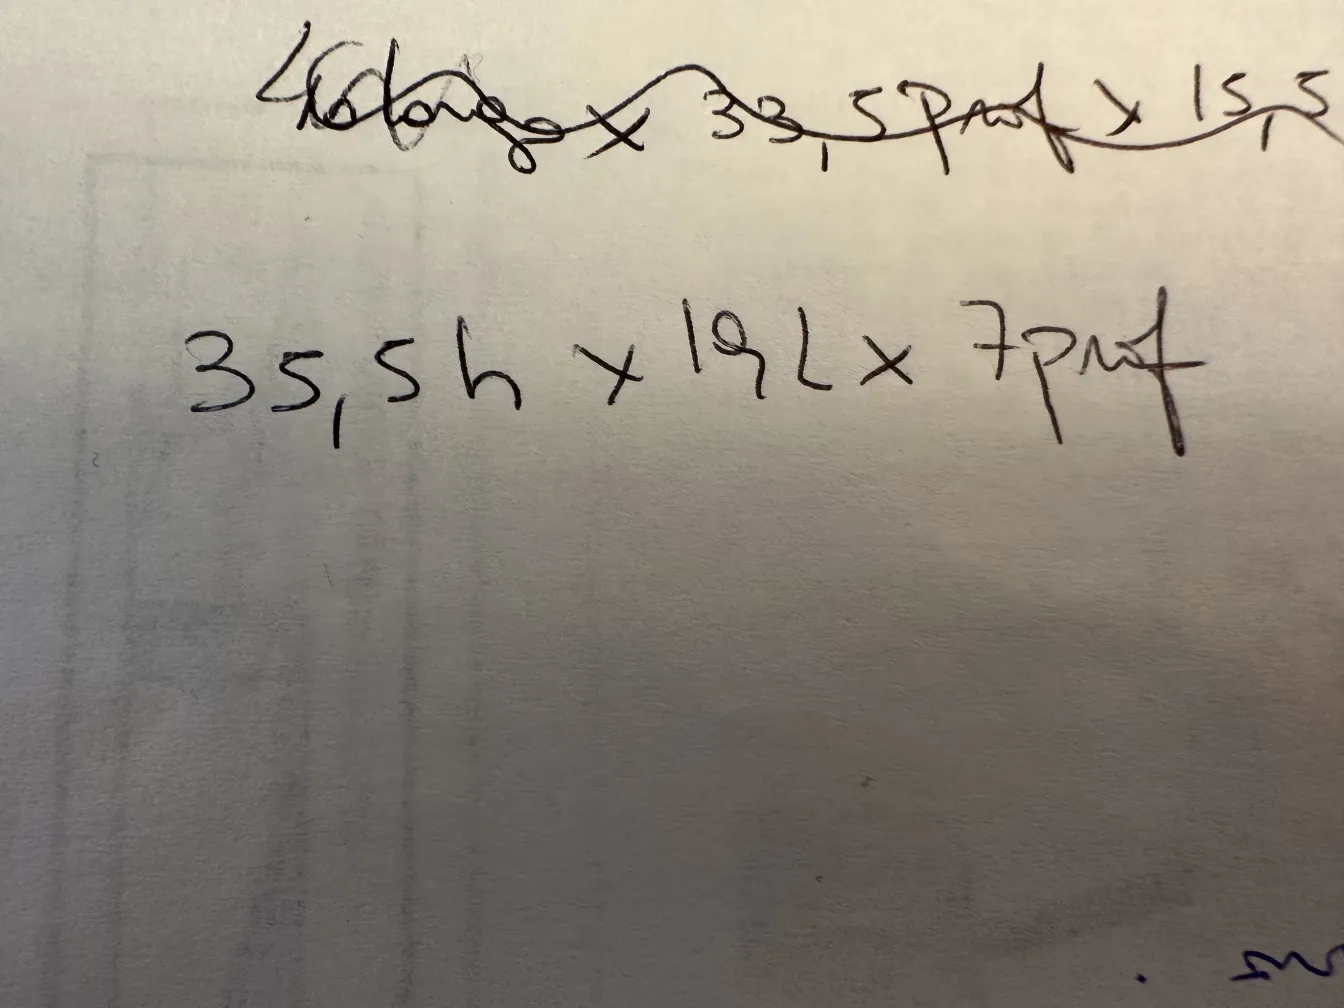 x 33,5 prof x 15,5
35,5 h x 19 L x 7 prof